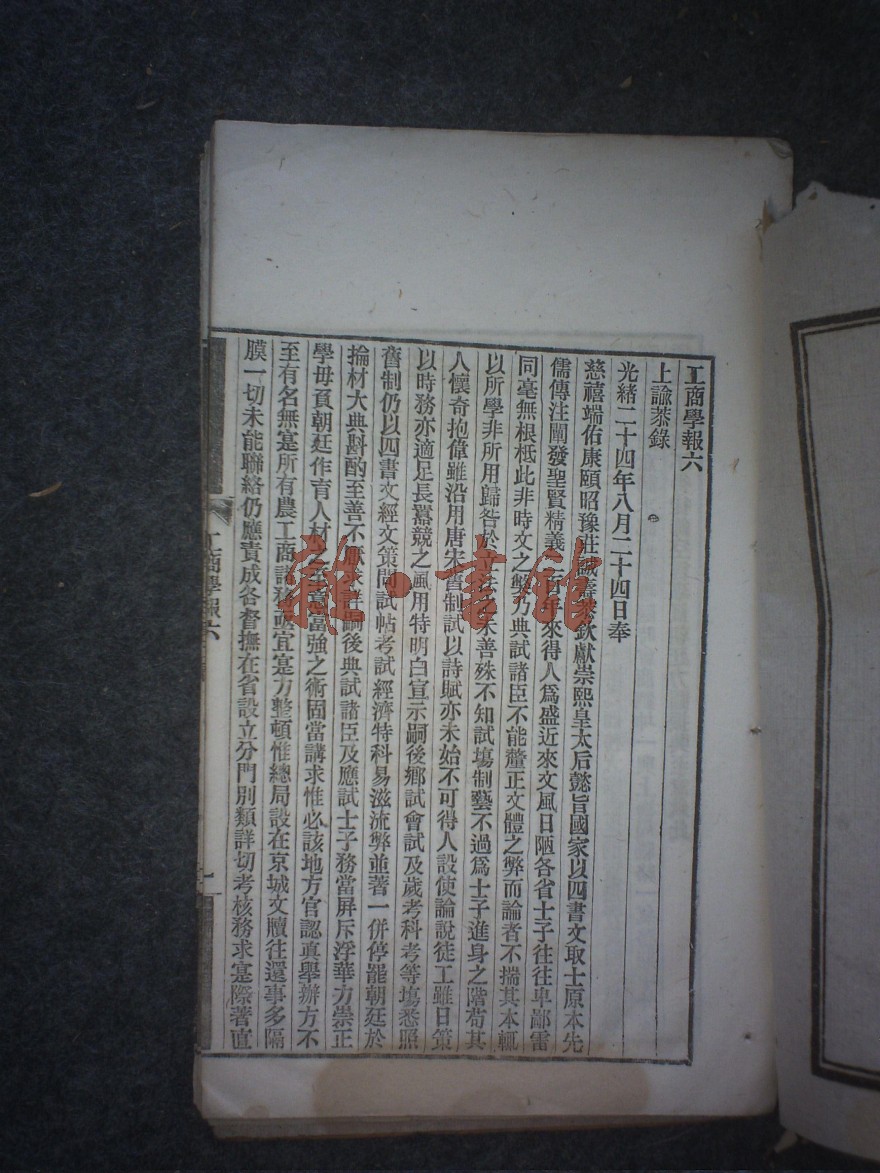 工商學報六
上諭恭錄
光緒二十四年八月二十四日奉
慈禧端佑康頤昭豫莊誠壽恭欽獻崇熙皇太后懿旨國家以四書文取士原本先
儒傳注闡發聖賢精義二百年來得人爲盛近來文風日陋各省士子往往卑鄙雷
同毫無根柢此非時文之弊乃典試諸臣不能釐正文體之弊而論者不揣其本輒
以所學非所用歸咎於立法之未善殊不知試塲制藝不過爲士子進身之階苟其
人懷奇抱偉雖沿用唐宋舊制試以詩賦亦未始不可得人設使論說徒工雖日策
以時務亦適足長囂競之風用特明白宣示嗣後鄉試會試及歲考科考等塲悉照
舊制仍以四書文經文策問試帖考試經濟特科易滋流弊並著一併停罷朝廷於
掄材大典斟酌至善不 嗣後典試諸臣及應試士子務當屏斥浮華力崇正
學毋負朝廷作育人材之至意富強之術固當講求惟必該地方官認眞舉辦方不
至有名無寔所有農工商諸務亟宜寔力整頓惟總局設在京城文牘往還事多隔
膜一切未能聯絡仍應責成各督撫在省設立分門別類詳切考核務求寔際著直
工商學報六
一
雜·書館